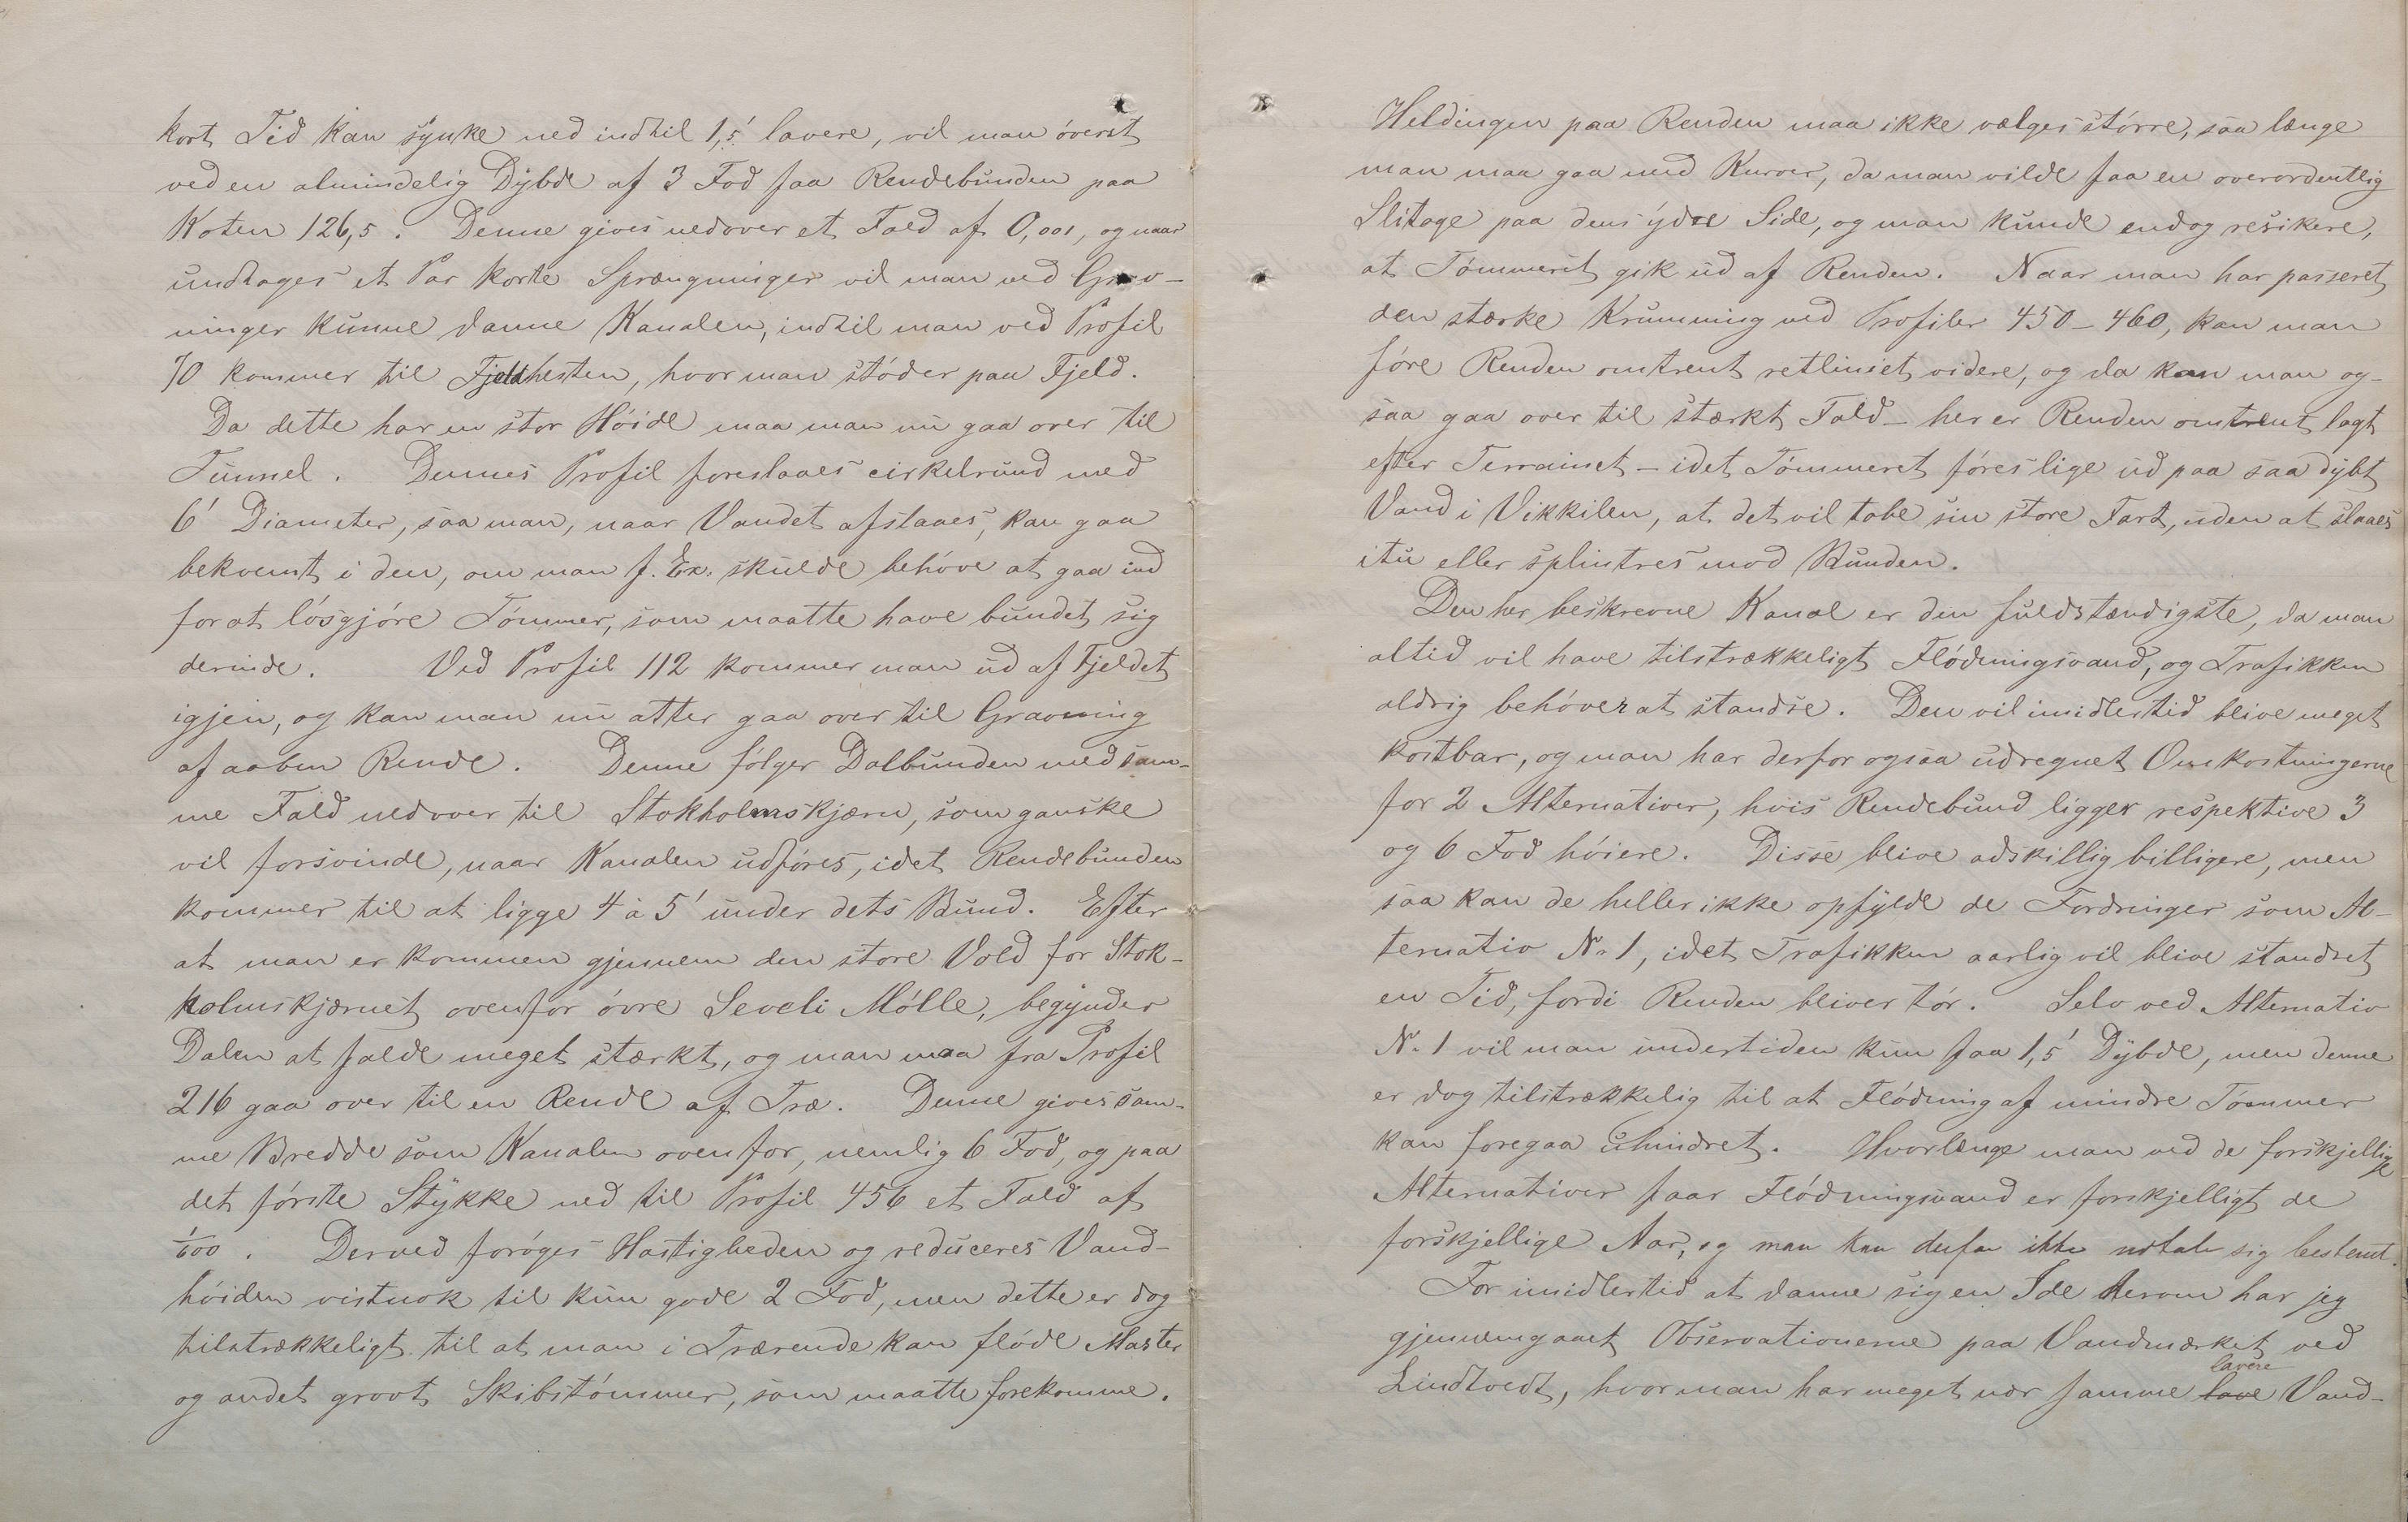 kort Tid kan synke ned indtil 1,5' lavere, vil man øverst
ved en almindelig Dybde af 3 Fod faa Rendebunden paa
Koten 126,5. Denne gives nedover et Fald af 0,001, og naar
undtages et Par korte Sprængninger vil man ved Grav-
ninger kunne danne Kanalen, indtil man ved Profil
70 kommer til Fjeldhesten, hvor man støder paa Fjeld.
Da dette har en stor Høide maa man nu gaa over til
Tunnel. Dennes Profil foreslaaes cirkelrund med
6' Diameter, saa man, naar Vandet afslaaes, kan gaa
bekvemt i den, om man f. Ex. skulde behøve at gaa ind
for at løsgjøre Tømmer, som maatte have bundet sig
derinde. Ved Profil 112 kommer man ud af Fjeldet
igjen, og kan man nu atter gaa over til Gravning
af aaben Rende. Denne følger Dalbunden med sam-
me Fald nedover til Stokholmskjærn, som ganske
vil forsvinde, naar Kanalen udføres, idet Rendebunden
kommer til at ligge 4 à 5' under dets Bund. Efter
at man er kommen gjennem den store Vold for Stok-
holmskjærnet ovenfor øvre Seveli Mølle, begynder
Dalen at falde meget stærkt, og man maa fra Profil
216 gaa over til en Rende af Træ. Denne gives sam-
me Bredde som Kanalen ovenfor, nemlig 6 Fod, og paa
det første Stykke ned til Profil 456 et Fald af
1/600. Derved forøges Hastigheden og reduceres Vand-
høiden vistnok til kun gode 2 Fod, men dette er dog
tilstrækkeligt til at man i Trærende kan fløde Master
og andet grovt Skibstømmer, som maatte forekomme.
Heldingen paa Renden maa ikke vælges større, saa længe
man maa gaa med Kurver, da man vilde faa en overordentlig
Slitage paa dens ydre Side, og man kunde endog resikere,
at Tømmeret gik ud af Renden. Naar man har passeret
den stærke Krumning ved Profiler 450-460, kan man
føre Renden omtrent retliniet videre, og da kan man og-
saa gaa over til stærkt Fald - her er Renden omtrent lagt
efter Terrainet - idet Tømmeret føres lige ud paa saa dybt
Vand i Vikkilen, at det vil tabe sin store Fart, uden at slaaes
itu eller splintres mod Bunden.
Den her beskrevne Kanal er den fuldstændigste, da man
altid vil have tilstrækkeligt Flødningsvand, og Trafikken
aldrig behøver at standse. Den vil imidlertid blive meget
kostbar, og man har derfor ogsaa udregnet Omkostningerne
for 2 Alternativer, hvis Rendebund ligger respektive 3
og 6 Fod høiere. Disse blive adskillig billigere, men
saa kan de heller ikke opfylde de Fordringer som Al-
ternativ No 1, idet Trafikken aarlig vil blive standset
en Tid, fordi Renden bliver tør. Selv ved Alternativ
No 1 vil man undertiden kun faa 1,5' Dybde, men denne
er dog tilstrækkelig til at Flødning af mindre Tømmer
kan foregaa uhindret. Hvorlænge man ved de forskjellige
Alternativer faar Flødningsvand er forskjelligt de
forskjellige Aar, og man kan derfor ikke udtale sig bestemt.
For imidlertid at danne sig en Ide herom har jeg
gjennemgaaet Observationerne paa Vandmærket ved
Lindtvedt, hvor man har meget nær samme lave lavere Vand-